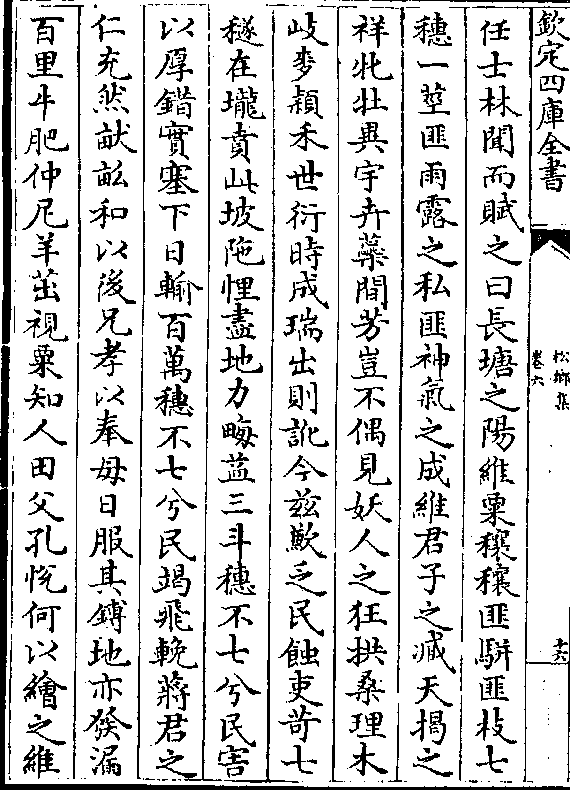 欽定四庫全書
松鄉集
卷六
十六
任士林聞而賦之曰長塘之陽維粟穰穰匪駢匪枝七
穗一莖匪雨露之私匪神氣之成維君子之臧天揭之
祥牝牡異宇卉藥間芳豈不偶見妖人之狂拱桑理木
岐麥穎禾世衍時成瑞出則訛今茲歉乏民蝕吏苛七
穟在壠賁此坡陁悝盡地力畮葢三斗穗不七兮民害
以厚錯實塞下日輸百萬穗不七兮民竭飛輓蔣君之
仁充然畎畝和以後兄孝以奉母日服其鎛地亦發漏
百里牛肥仲尼羊茁視粟知人田父孔悅何以繪之維